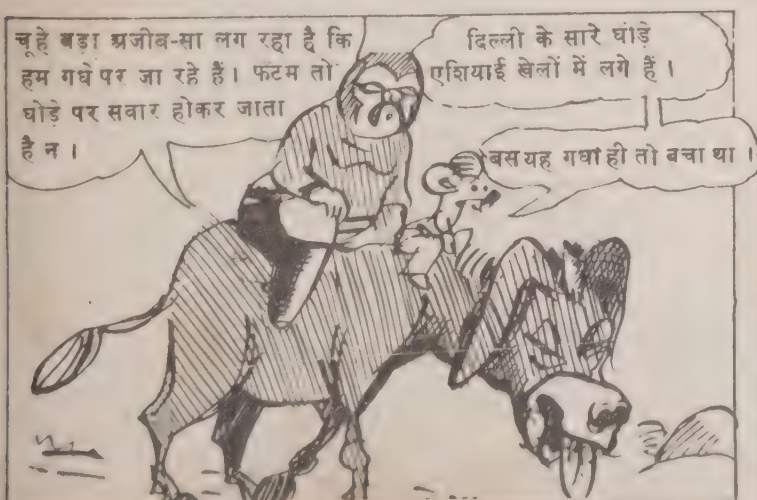 चूहे बड़ा अजीब-सा लग रहा है कि
हम गधे पर जा रहे हैं। फटम तो
घोड़े पर सवार होकर जाता
है न।
दिल्ली के सारे घोड़े
एशियाई खेलों में लगे हैं।
बस यह गधा ही तो बचा था।